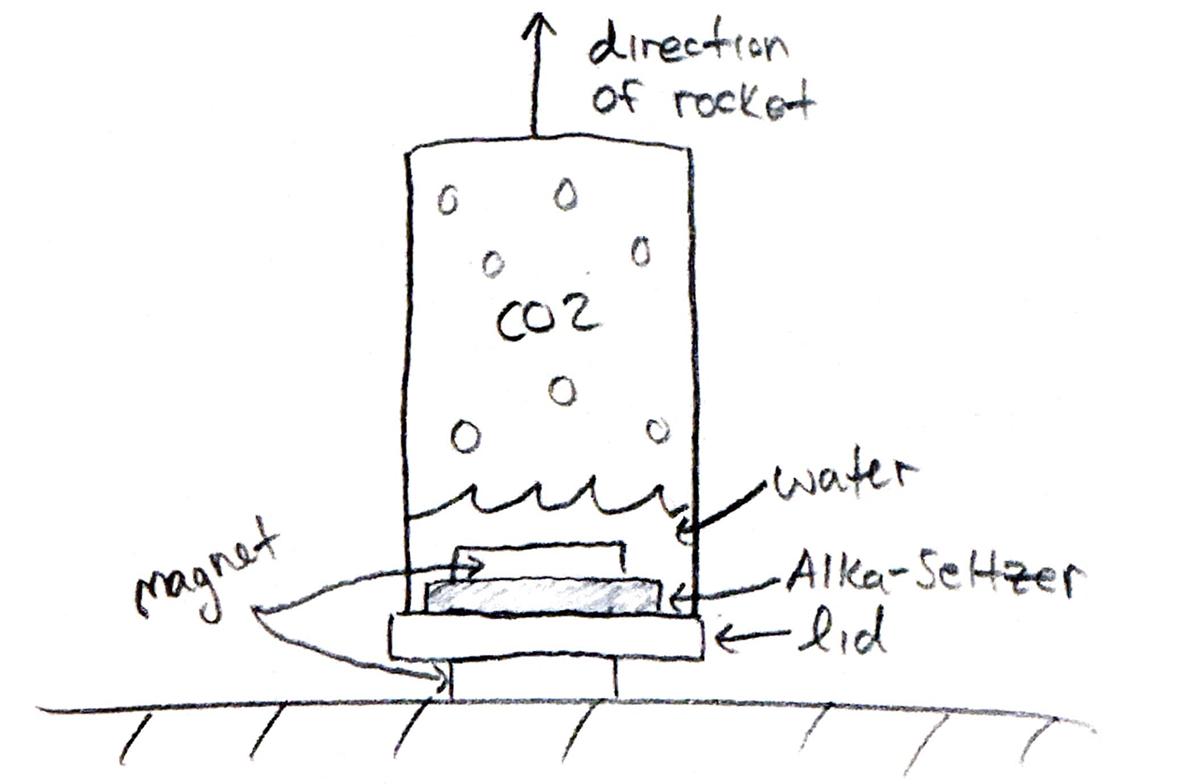 direction
of rocket
CO2
water
magnet
Alka-Seltzer
lid